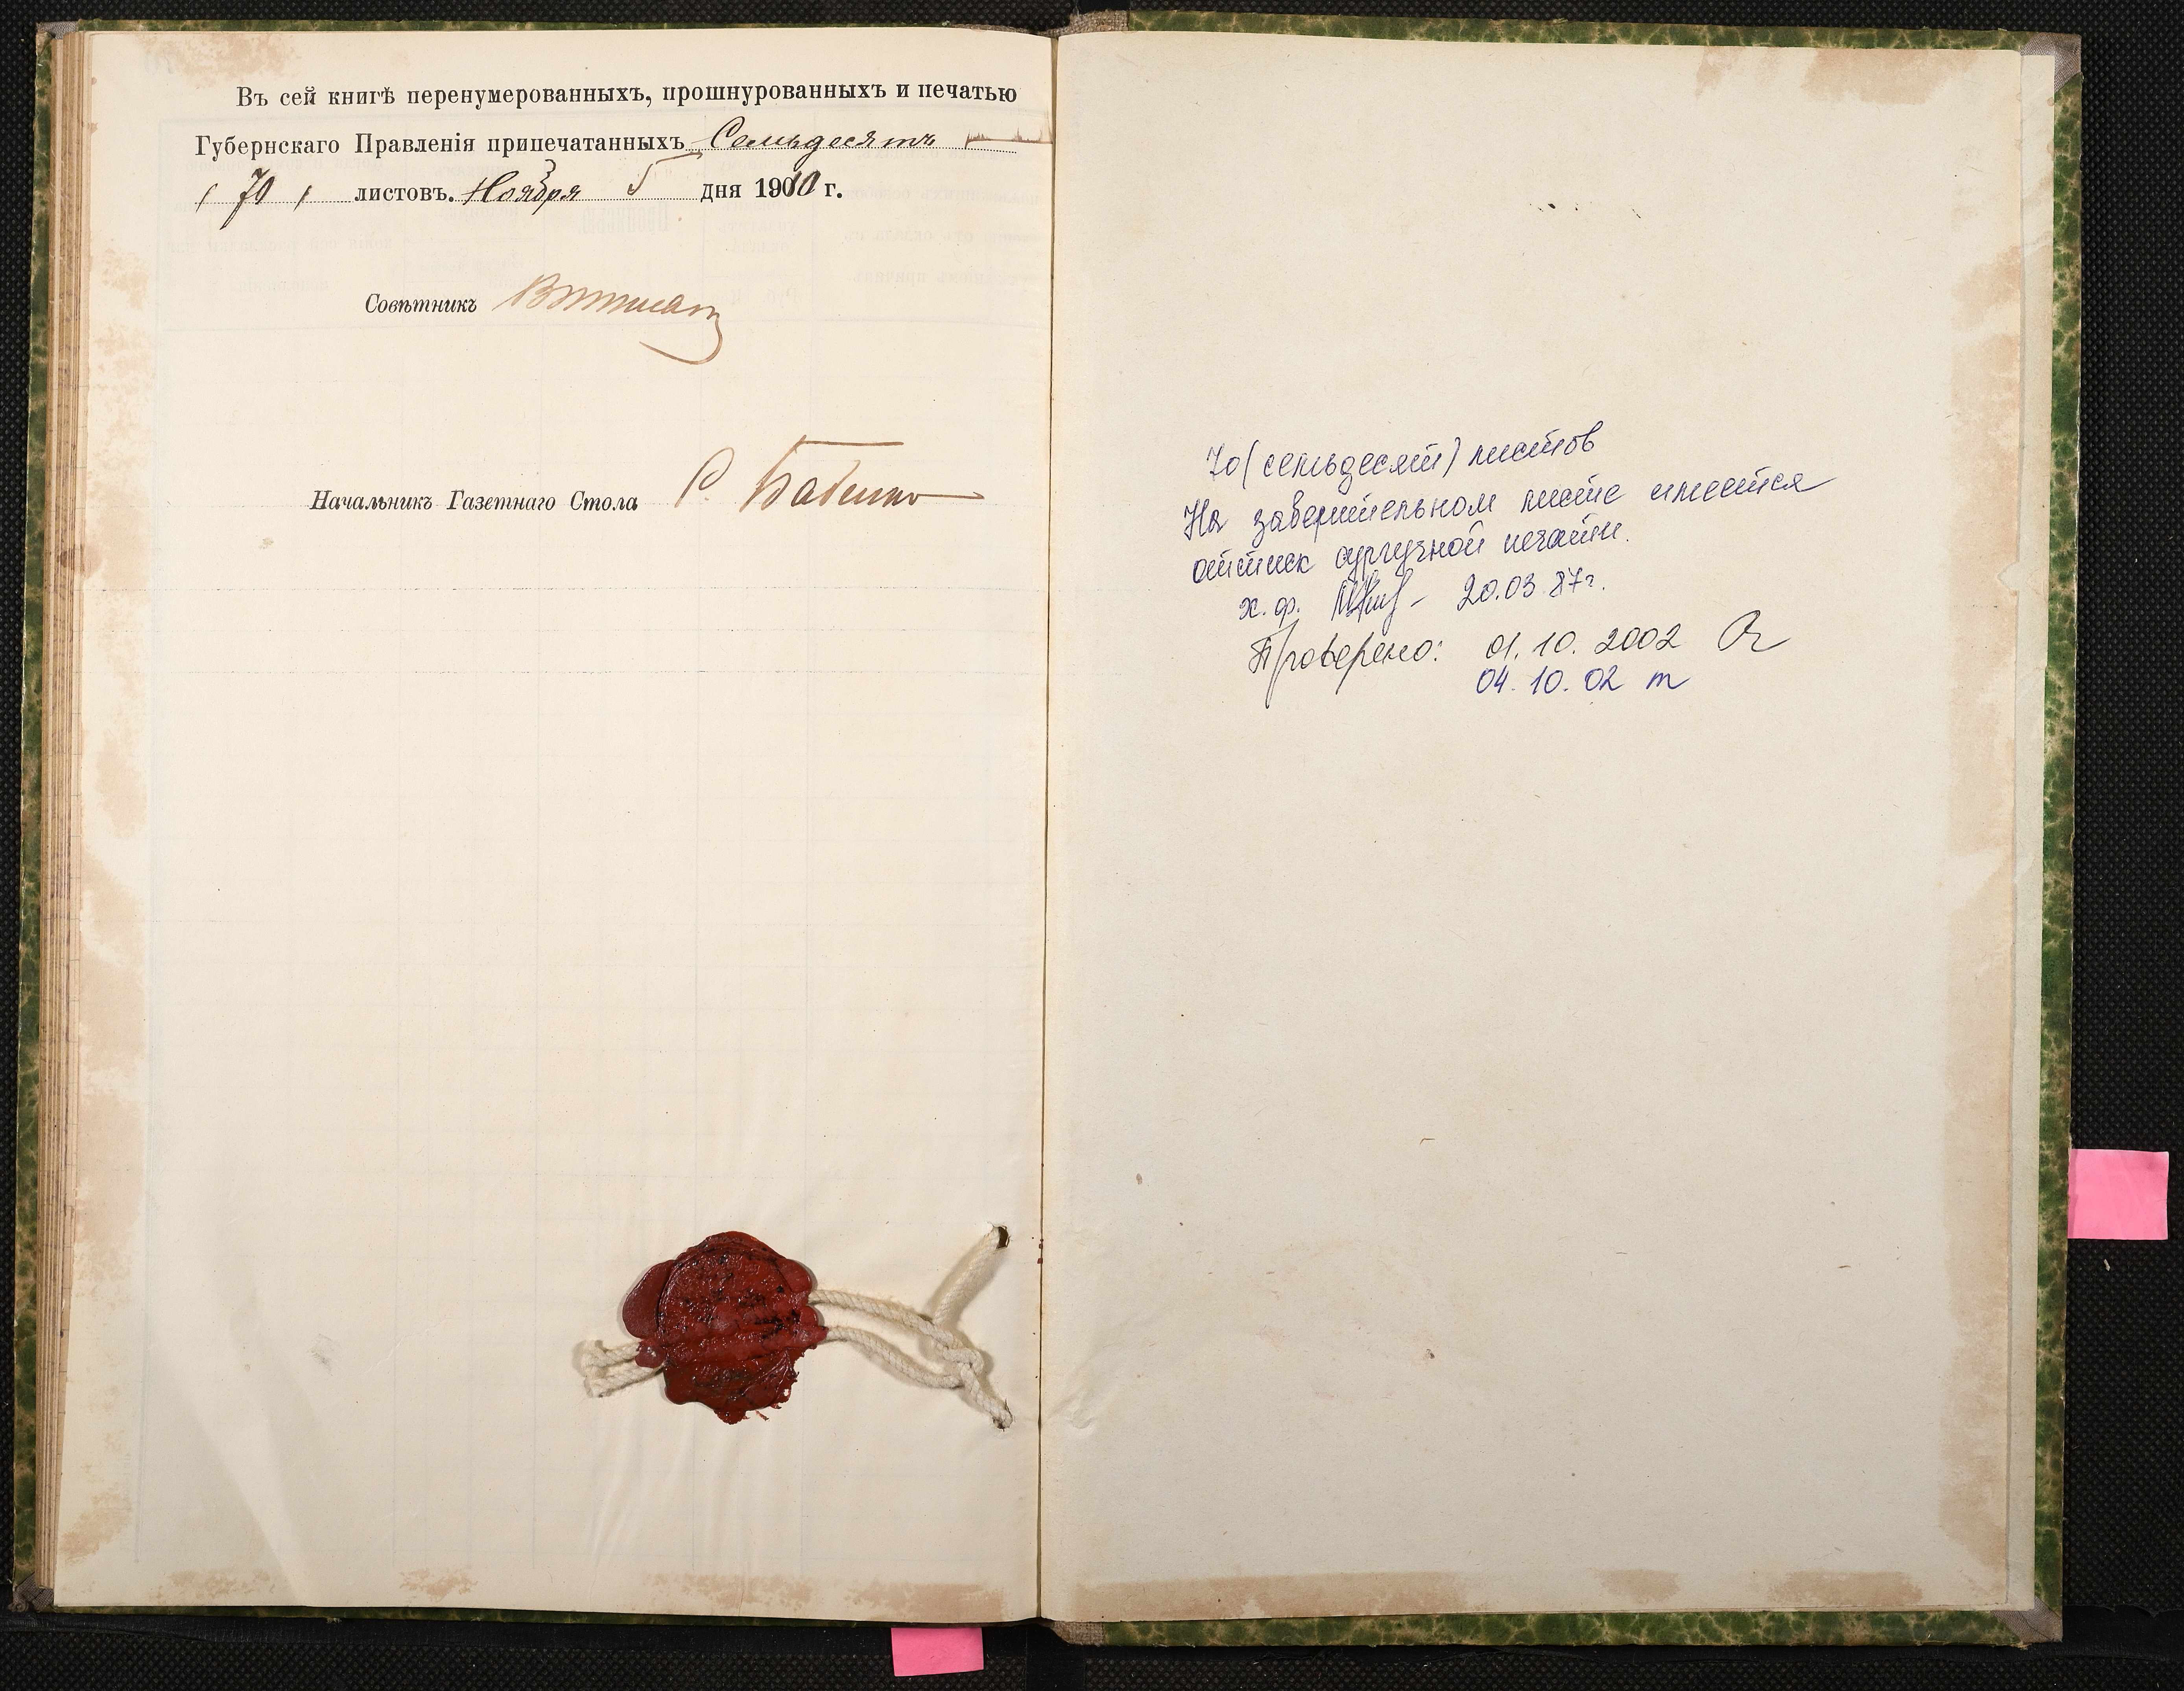 Въ сей книгѣ перенумерованныхъ, прошнурованныхъ и печатью
Губернскаго Правленія припечатанныхъ Семьдесятъ
(70) листовъ. Ноября 5 дня 1910 г.
Совѣтникъ
Начальникъ Газетнаго Стола С. Бабенко
70 (семьдесят) листов
На заверительном листе имеется
оттиск сургучной печати.
х.ф. 20.03.87г.
Проверено: 01.10.2002
04.10.02